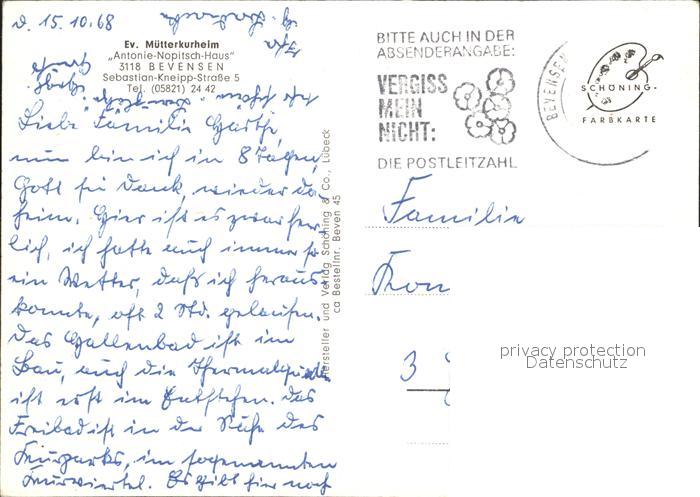 d. 15.10.68
Ev. Mütterkurheim
„Antonie-Nopitsch-Haus"
3118 BEVENSEN
Sebastian-Kneipp-Straße 5
Tel. (05821) 24 42
Liebe Familie
nun bin ich in 8 Tagen,
Gott sei Dank, wieder da-
heim. Hier ist es zwar herr-
lich, ich hatte auch immer so
ein Wetter, daß ich heraus
konnte, oft 2 Std. gelaufen.
Das Hallenbad ist im
Bau, auch die Thermalquelle
ist erst im Entstehen. Das
Freibad ist in der Nähe des
Kurparks, im sogenannten
Kurviertel. Es gibt hier noch
Hersteller und Verlag Schöning & Co., Lübeck
ca Bestellnr. Beven 45
BITTE AUCH IN DER
ABSENDERANGABE:
VERGISS
MEIN
NICHT:
DIE POSTLEITZAHL
BEVENSEN
SCHÖNING-
FARBKARTE
Familie
3
privacy protection
Datenschutz